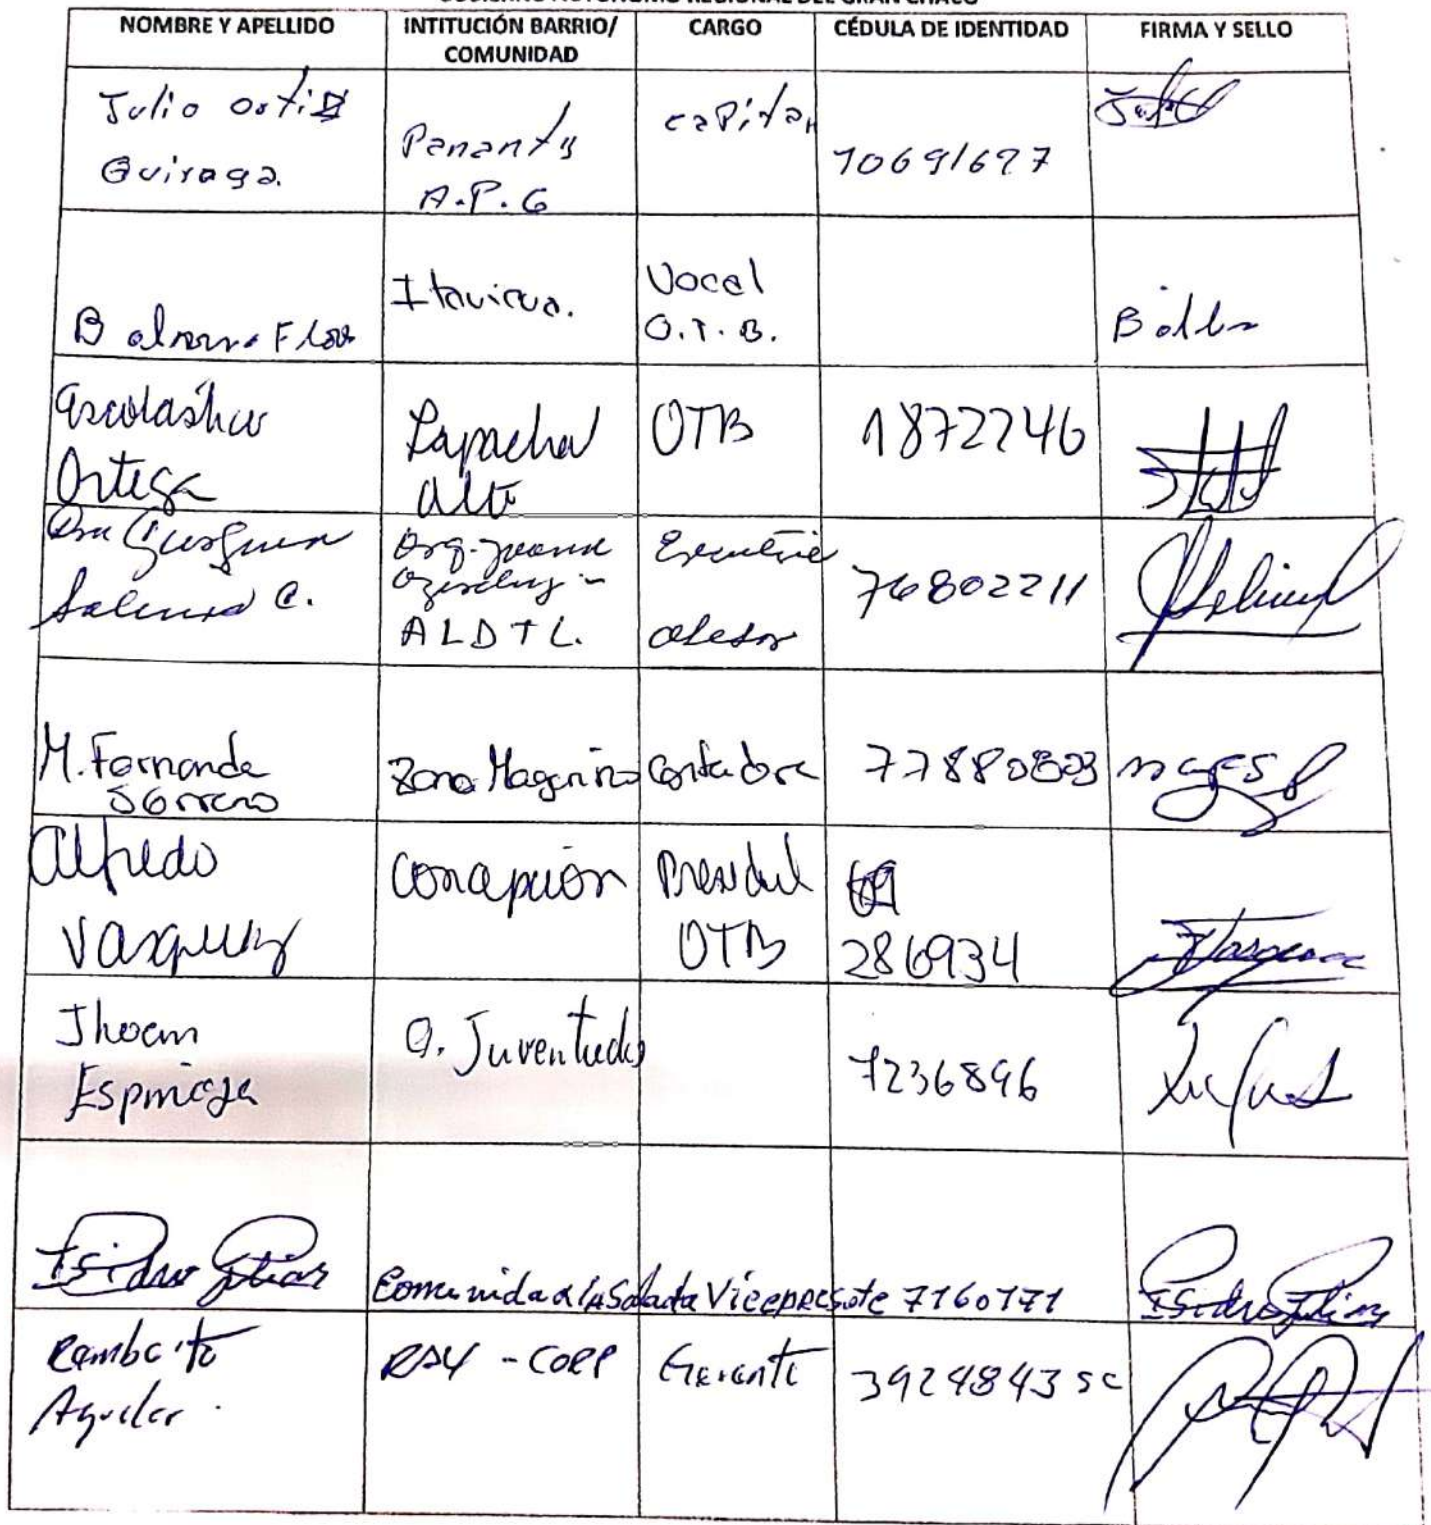 GOBIERNO AUTÓNOMO REGIONAL DEL GRAN CHACO
NOMBRE Y APELLIDO INTITUCIÓN BARRIO/ COMUNIDAD CARGO CÉDULA DE IDENTIDAD FIRMA Y SELLO
Julio Ortiz
Quiroga.
Pananty
A.P.G
capitan
10691697
Itavicua.
Vocal
O.T.B.
Escolastica
Ortega
Lapachal
alto
OTB
1872246
Salinas C.
Org. Juana
Azurduy
ALDTL.
asesor
76802211
M. Fernanda
Serrano
Zona Magariños
Contadora
77880803
Alfredo
Vasquez
Concepción
OTB
286934
Jhoen
Espinoza
O. Juventudes
7236896
Isidro
Comunidad la Salada Vicepresete 7160171
Isidro
Remberto
Aguilar.
- CORP
Gerente
3924843 SC